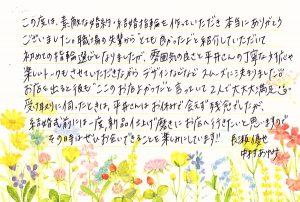 この度は、素敵な婚約・結婚指輪を作っていただき本当にありがとう
ございました。職場の先輩から"とても良かったよ"と紹介していただいて
初めての指輪選びとなりましたが、雰囲気の良さと平井さんの丁寧な
楽しいトークもさせていただきながらデザインなどなどスムーズに決まりました!!
お店を出ると彼も"ここのお店でよかった"と言っていて2人で大大大満足
受け取りに伺ったときは、平井さんはお休みで会えず残念でしたが、
結婚式前には一度、新品仕上げ、磨きにお店へ行きたいと思いますので
その時はぜひお会いできることを楽しみにしています!!